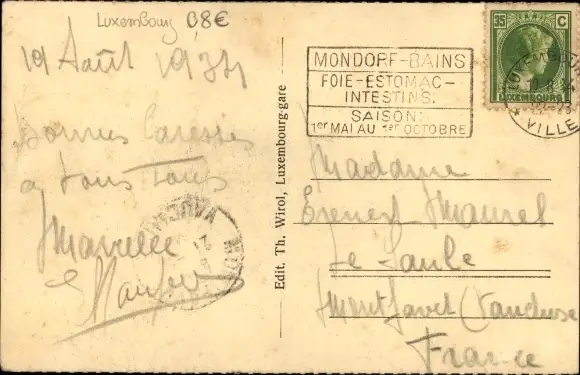 Luxembourg 08€
19 Août 1934
Bonnes Caresses
à tous tous
Edit. Th. Wirol, Luxembourg-gare
MONDORF-BAINS
FOIE-ESTOMAC-
INTESTINS.
SAISON:
1er MAI AU 1er OCTOBRE
35 C
LUXEMBOURG
LUXEMBOURG
VILLE
Madame
Ernest Maurel
Le Saule
Montfavet (Vaucluse)
France